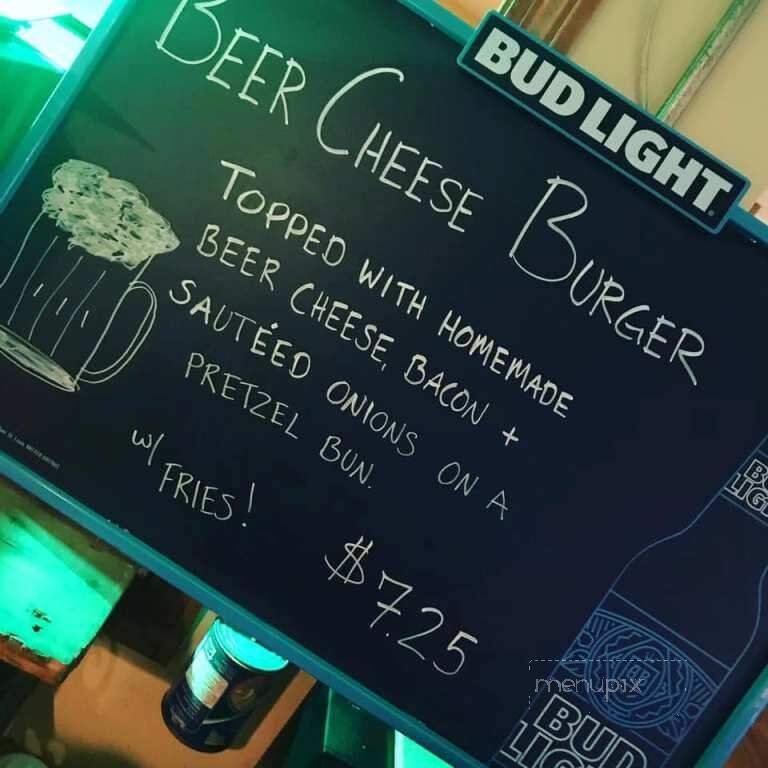 BUD LIGHT
BEER CHEESE BURGER
TOPPED WITH HOMEMADE
BEER CHEESE, BACON +
SAUTÉED ONIONS ON A
PRETZEL BUN.
w/ FRIES!
$7.25
BUD
LIGHT
menupix